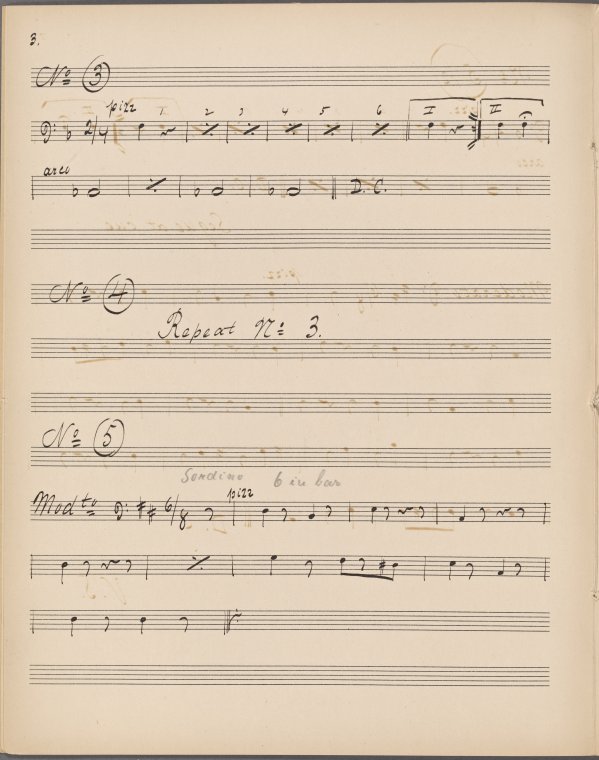 3.
No 3
pizz 1 2 3 4 5 6 I II
2/4
arco
D.C.
No 4
Repeat No 3.
No 5
Sordino 6 in bar
Modto 6/8 pizz